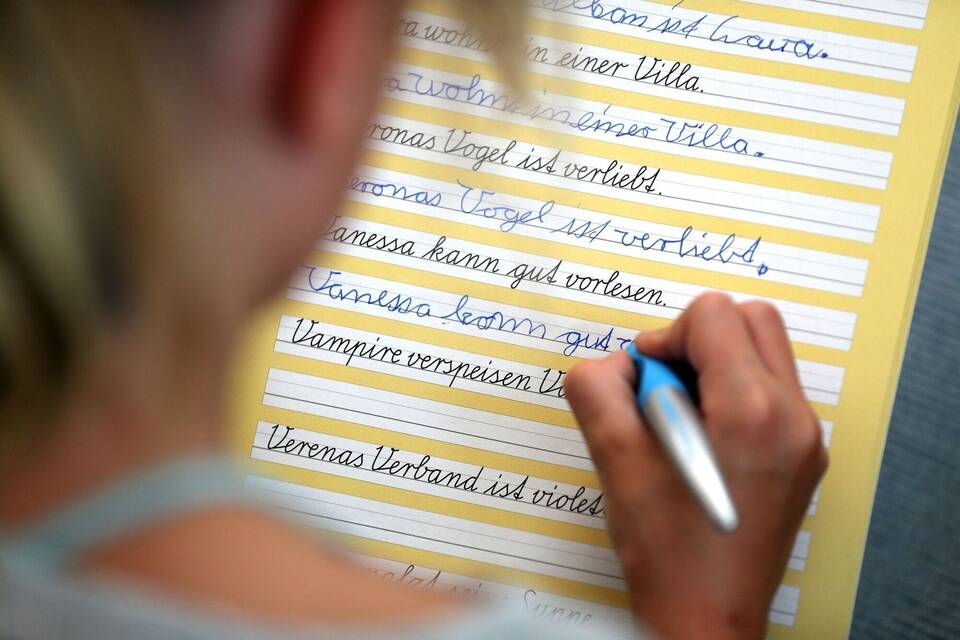 ist Laura.
wohnt in einer Villa.
wohnt in einer Villa.
Vogel ist verliebt.
Vogel ist verliebt.
Vanessa kann gut vorlesen.
Vanessa kann gut
Vampire verspeisen
Verenas Verband ist violett
seine